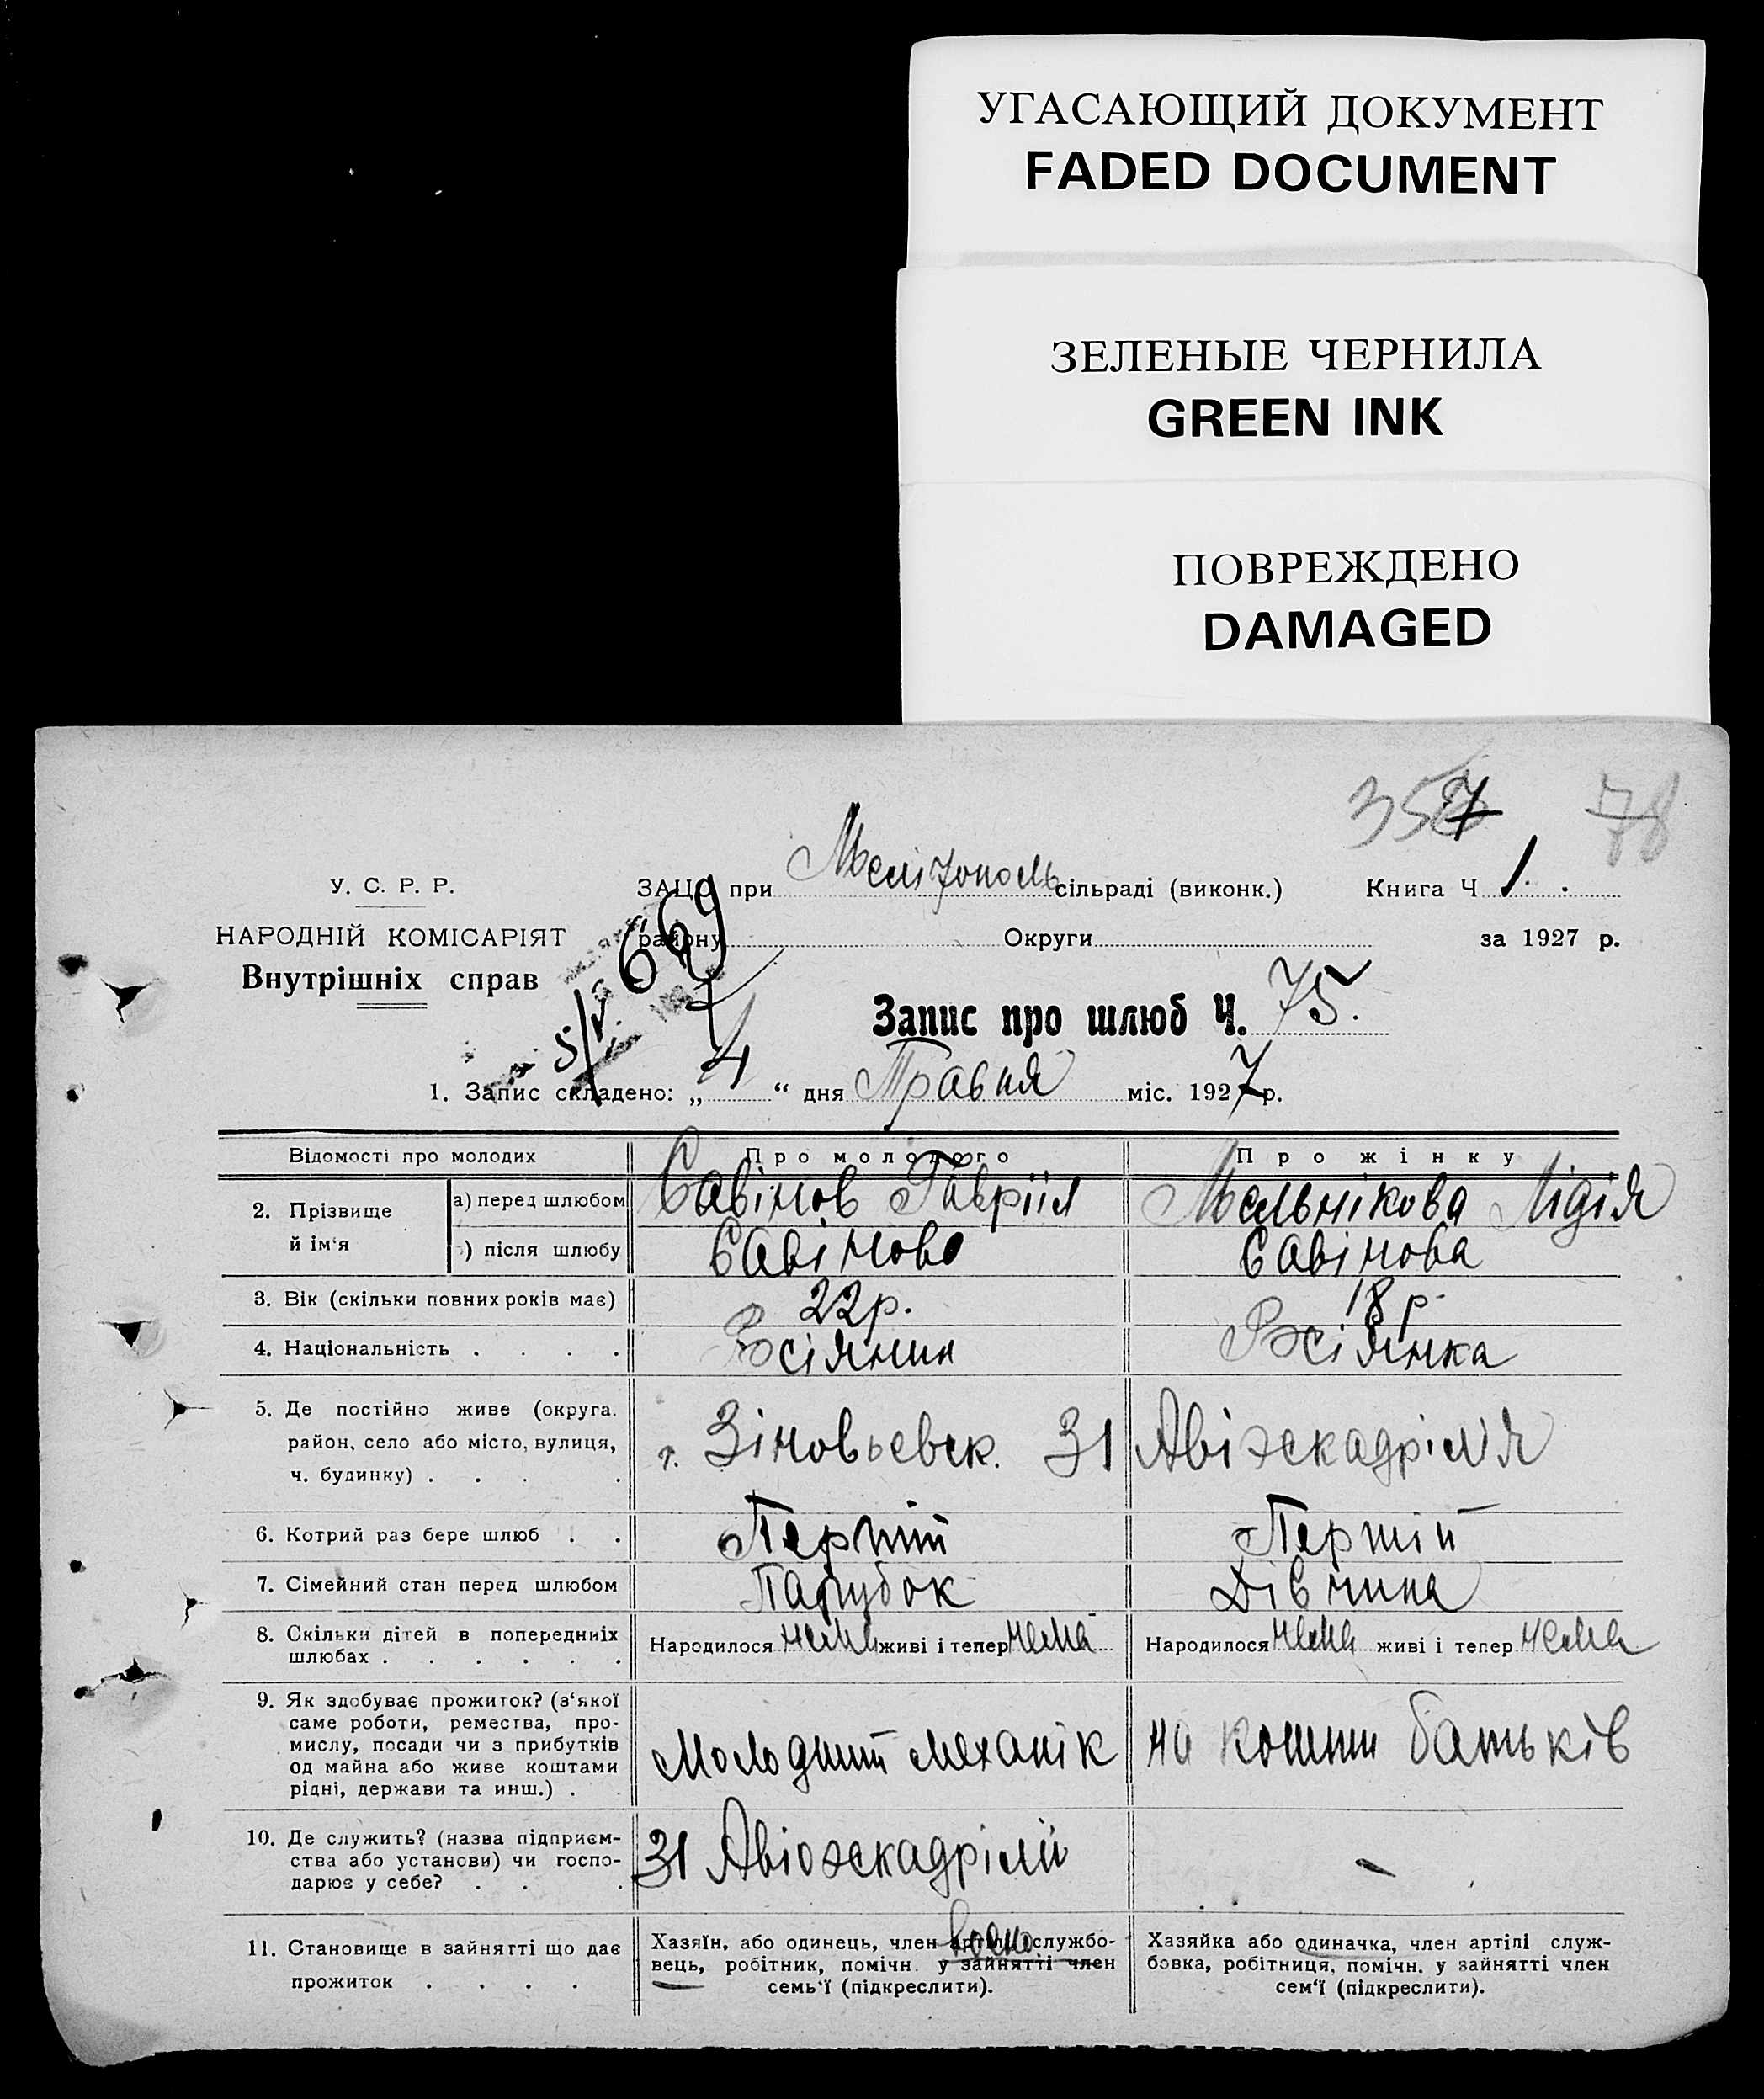 УГАСАЮЩИЙ ДОКУМЕНТ
FADED DOCUMENT
ЗЕЛЕНЫЕ ЧЕРНИЛА
GREEN INK
ПОВРЕЖДЕНО
DAMAGED
78
У. С. Р. Р.
ЗАЦС при Мелітополь сільраді (виконк.) Книга Ч 1.
НАРОДНІЙ КОМІСАРІЯТ
району Округи за 1927 р.
Внутрішніх справ
5/V 669
Запис про шлюб Ч. 75.
1. Запис складено: „ 4 “ дня Травня міс. 1927 р.
Відомості про молодих Про молодого Про жінку
2. Прізвище й ім‘я а) перед шлюбом Савінов Гавріїл Мельнікова Лідія
) після шлюбу Савінов Савінова
3. Вік (скільки повних років має) 22 р. 18 р.
4. Національність . . . . Росіянин Росіянка
5. Де постійно живе (округа.
район, село або місто, вулиця, г. Зіновьевск. 31 Авіоэскадрілія
ч. будинку) . . . .
6. Котрий раз бере шлюб . . Перший Першій
7. Сімейний стан перед шлюбом Парубок Дівчина
8. Скільки дітей в попередніх Народилося нема живі і тепер нема Народилося нема живі і тепер нема
шлюбах . . . . . .
9. Як здобуває прожиток? (з‘якої
саме роботи, ремества, про-
мислу, посади чи з прибутків Молодший механік на кошти батьків
од майна або живе коштами
рідні, держави та инш.) .
10. Де служить? (назва підприєм-
ства або установи) чи госпо- 31 Авіоэскадрілії -
дарює у себе? . . .
11. Становище в зайнятті що дає
прожиток . . . .
Хазяїн, або одинець, член артілі военно службо-
вець, робітник, помічн. у зайнятті член
семь‘ї (підкреслити).
Хазяйка або одиначка, член артілі служ-
бовка, робітниця, помічн. у зайнятті член
сем‘ї (підкреслити).